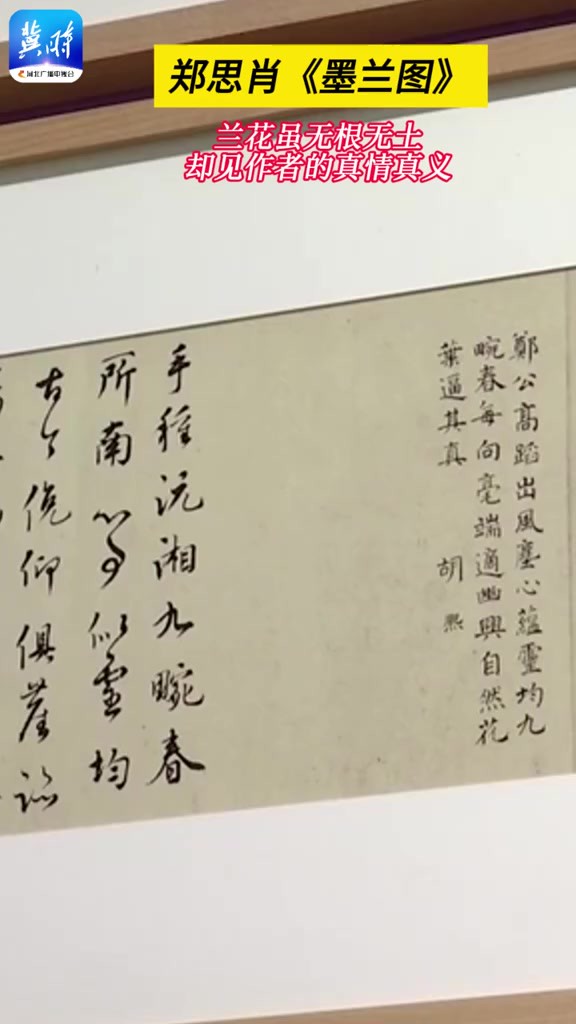 冀时
河北广播电视台
郑思肖《墨兰图》
兰花虽无根无土
却见作者的真情真义
鄭公高蹈出風塵心蘊靈均九
畹春每向毫端適幽興自然花
葉逼其真
胡熙
手種沅湘九畹春
所南心事似靈均
古今俛仰俱